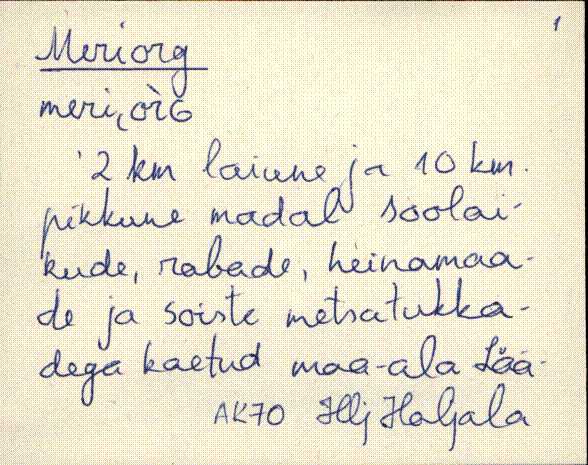 1
Meriorg
meri, òrG
2 km laiune ja 10 km.
pikkune madal soolai-
kude, rabade, heinamaa-
de ja soiste metsatukka-
dega kaetud maa-ala Lää-
AK70 Hlj Haljala